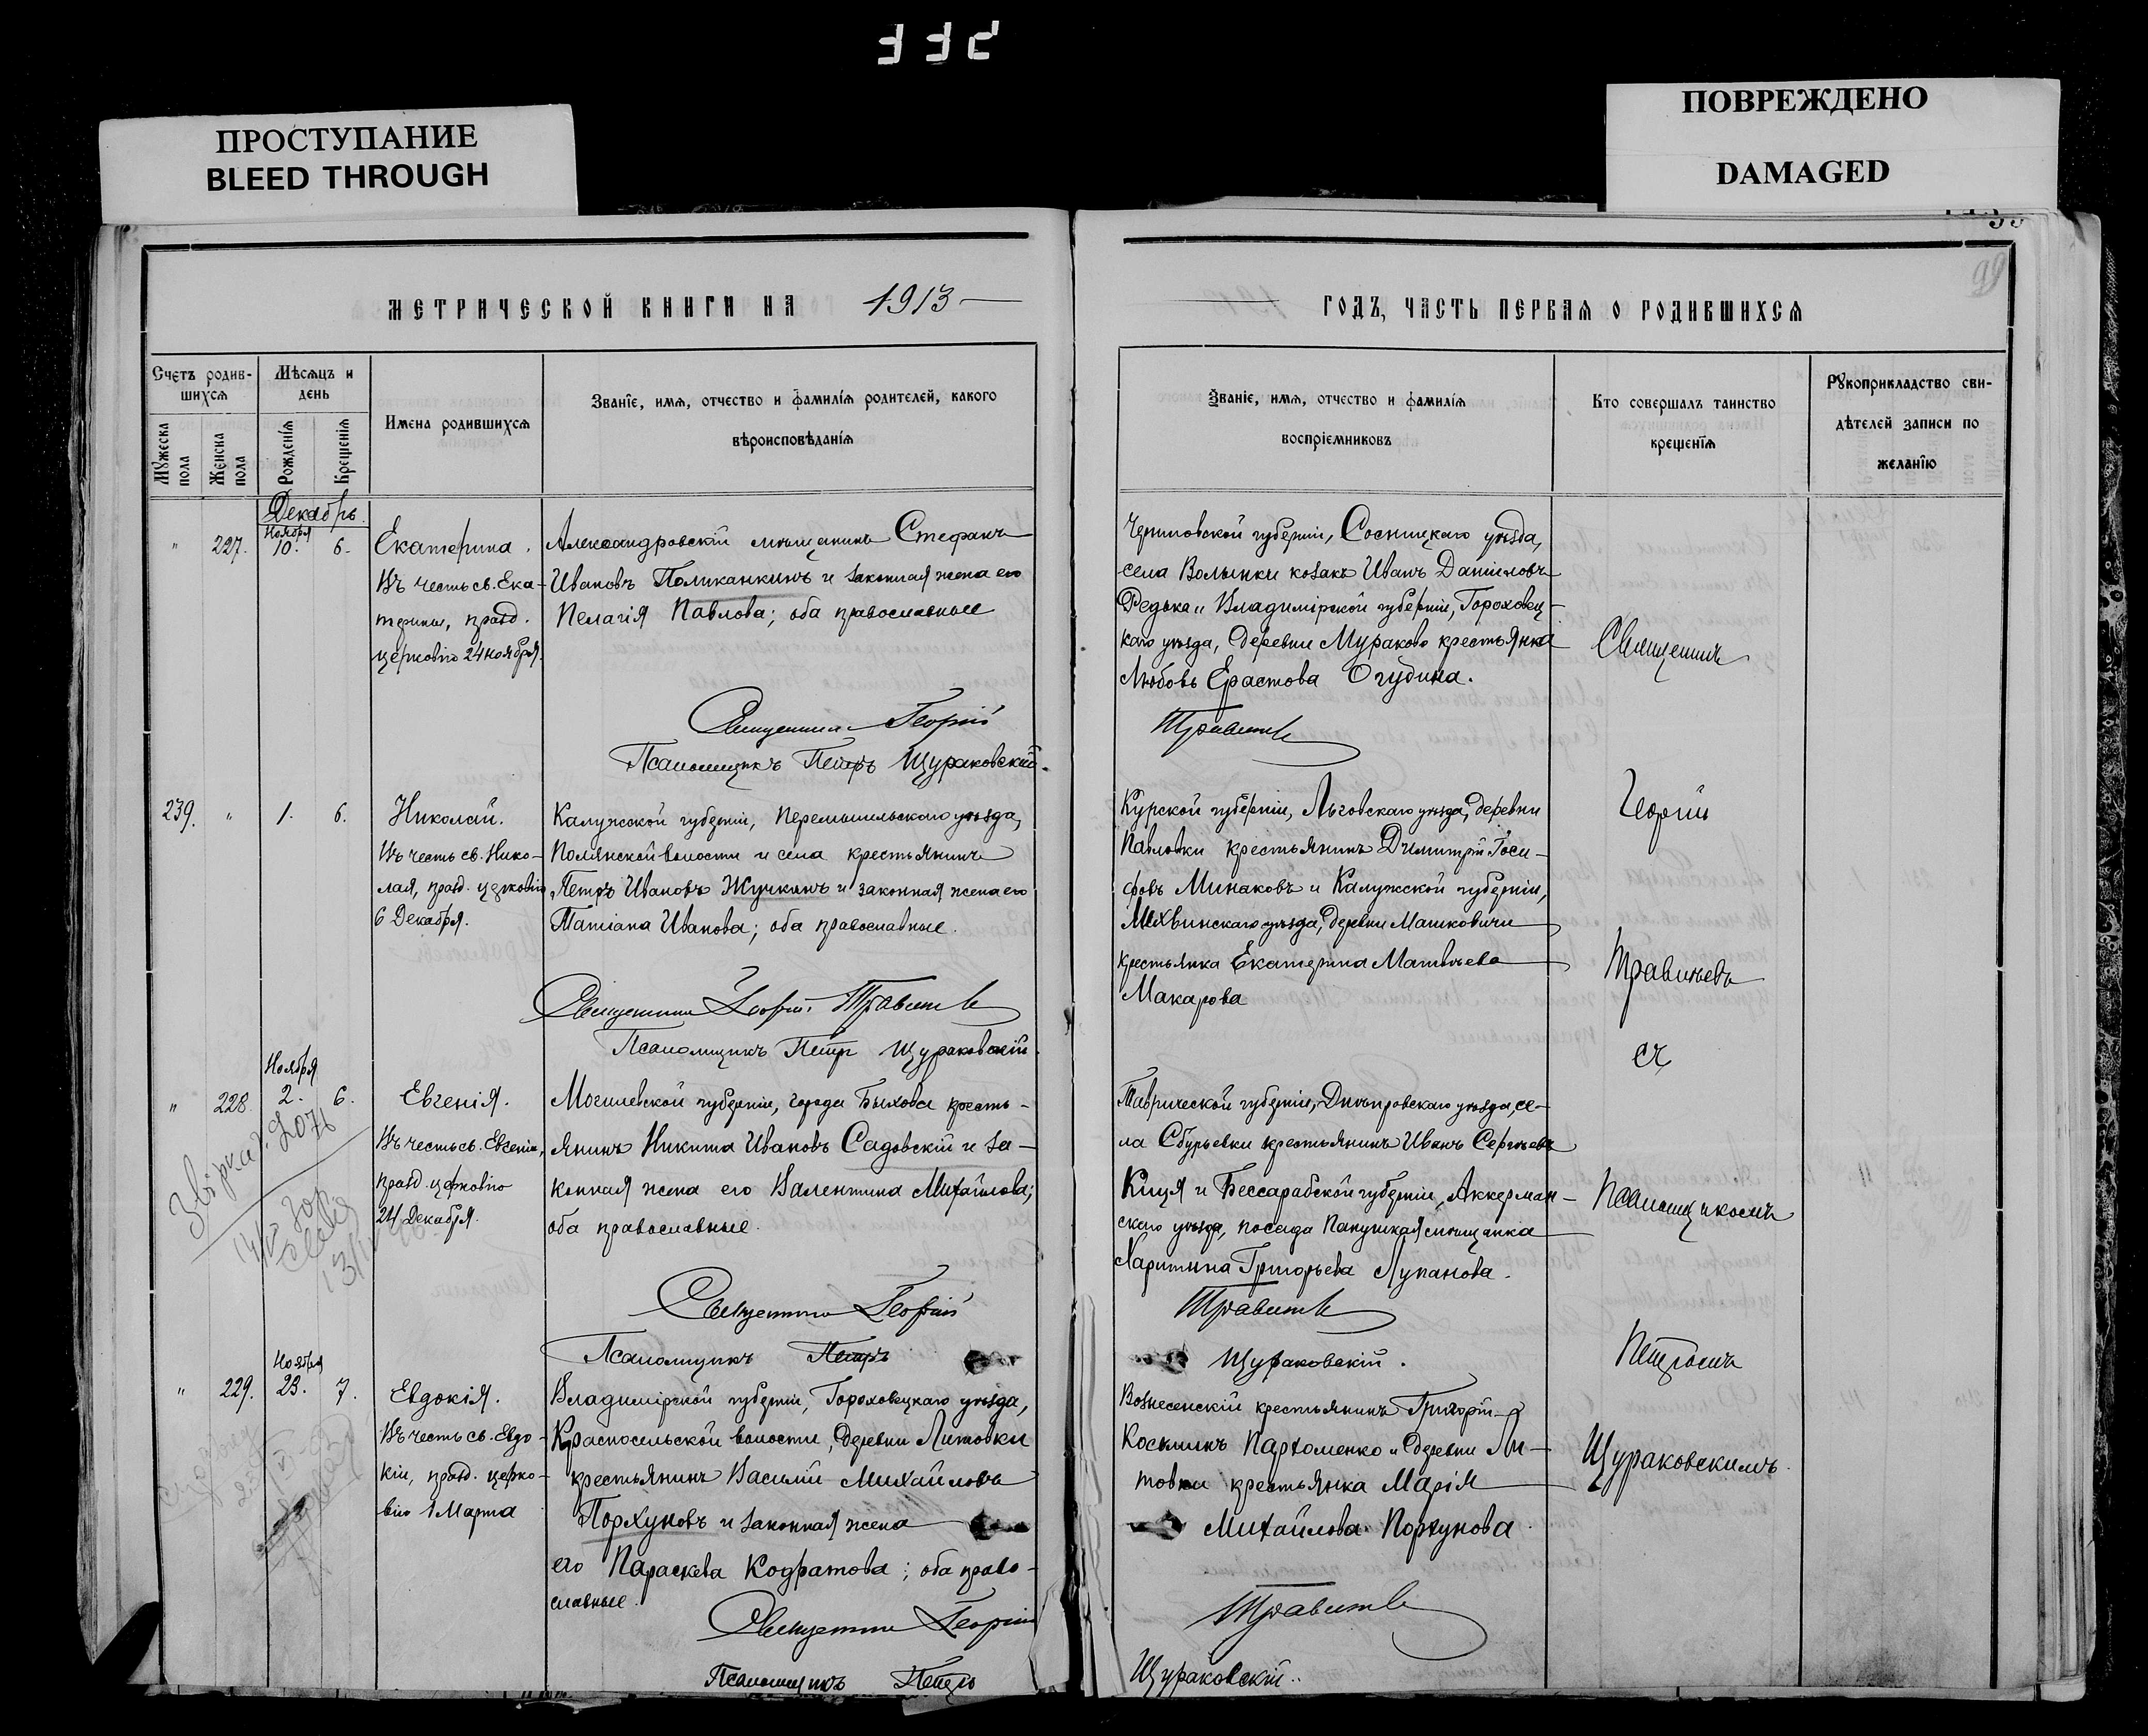 332
ПРОСТУПАНИЕ
BLEED THROUGH
ПОВРЕЖДЕНО
DAMAGED
99
МЕТРИЧЕСКОЙ КНИГИ НА 1913
ГОДЪ, ЧАСТЬ ПЕРВАЯ О РОДИВШИХСЯ
Счетъ родив-
шихся
Мѣсяцъ и
день
Мужеска пола
Женска пола
Рожденія
Крещенія
Имена родившихся
Званіе, имя, отчество и фамилія родителей, какого
вѣроисповѣданія
Званіе, имя, отчество и фамилія
воспріемниковъ
Кто совершалъ таинство
крещенія
Рукоприкладство сви-
дѣтелей записи по
желанію
Декабрь.
" 227. Ноября 10. 6.
Екатерина.
Въ честь св. Ека-
терины, празд.
церковію 24 ноября.
Александровскій мѣщанинъ Стефанъ
Ивановъ Поликанкинъ и законная жена его
Пелагія Павлова; оба православные
Священникъ Георгій
Псаломщикъ Петръ Щураковскій.
Черниговской губерніи, Сосницкаго уѣзда,
села Волынки козакъ Иванъ Даніиловъ
Редька и Владимірской губерніи, Гороховец-
каго уѣзда, деревни Мураково крестьянка
Любовь Ерастова Огудина.
Травинѣв
239. " 1. 6.
Николай.
Въ честь св. Нико-
лая, празд. церковію
6 Декабря.
Калужской губерніи, Перемышльскаго уѣзда,
Полянской волости и села крестьянинъ
Петръ Ивановъ Жучкинъ и законная жена его
Татіана Иванова; оба православные.
Священникъ Георгій Травинѣв
Псаломщикъ Петръ Щураковскій.
Курской губерніи, Льговскаго уѣзда, деревни
Павловки крестьянинъ Димитрій Іоси-
фовъ Минаковъ и Калужской губерніи,
Лихвинскаго уѣзда, деревни Машковичи
крестьянка Екатерина Матвѣева
Макарова
" 228. Ноября 2. 6.
Евгенія.
Въ честь св. Евгеніи,
празд. церковію
24 Декабря.
Могилевской губерніи, города Быхова кресть-
янинъ Никита Ивановъ Садовскій и за-
конная жена его Валентина Михайлова;
оба православные.
Священникъ Георгій
Псаломщикъ Петръ
Таврической губерніи, Днѣпровскаго уѣзда, се-
ла Сбурьевки крестьянинъ Иванъ Сергѣевъ
Куця и Бессарабской губерніи, Аккерман-
скаго уѣзда, посада мѣщанка
Харитина Григорьева Лупанова.
Травинѣв
Щураковскій.
" 229. Ноября 23. 7.
Евдокія.
Въ честь св. Евдо-
кіи, празд. церко-
вію 1 Марта
Владимірской губерніи, Гороховецкаго уѣзда,
Красносельской волости, деревни Литовки
крестьянинъ Василій Михайловъ
Порхуновъ и законная жена
его Параскева Кодратова; оба право-
славные.
Священникъ Георгій
Псаломщикъ Петръ
Вознесенскій крестьянинъ Григорій
Косьминъ Пархоменко и деревни Ли-
товки крестьянка Марія
Михайлова Порхунова.
Травинѣв
Щураковскій.
Священникъ
Георгій
Травинѣвъ
съ
Псаломщикомъ
Петромъ
Щураковскимъ.